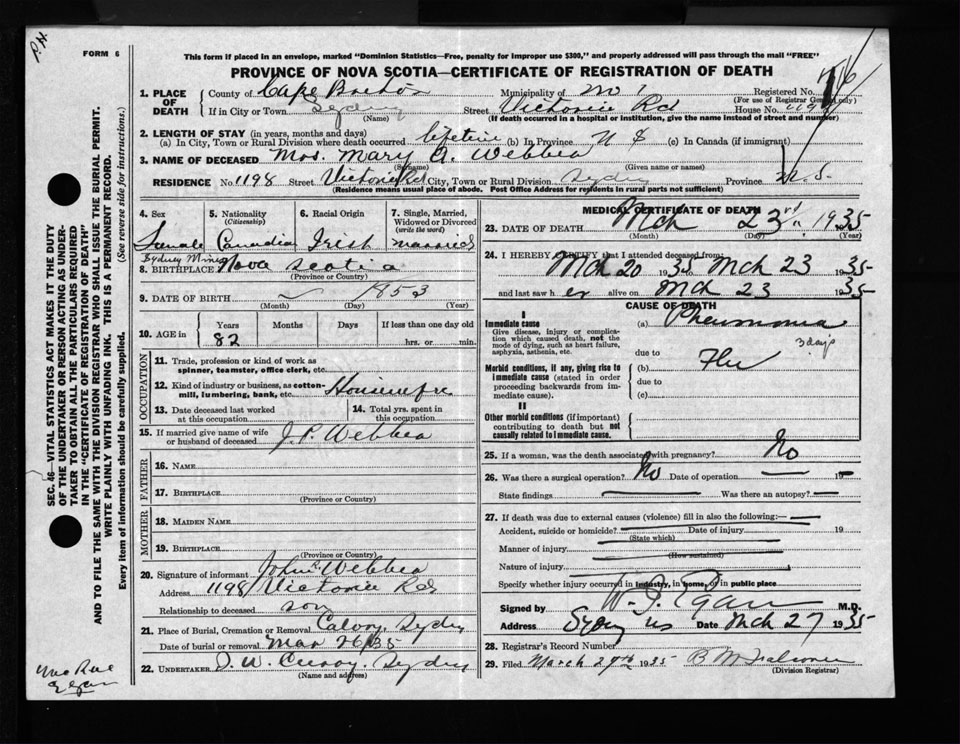 P.H.
FORM 6
This form if placed in an envelope, marked "Dominion Statistics—Free, penalty for improper use $300," and properly addressed will pass through the mail "FREE"
PROVINCE OF NOVA SCOTIA—CERTIFICATE OF REGISTRATION OF DEATH
1. PLACE OF DEATH
County of Cape Breton Municipality of Registered No.
(For use of Registrar General only)
If in City or Town Sydney Street Victoria Rd House No. 1198
(Name) (If death occurred in a hospital or institution, give the name instead of street and number)
2. LENGTH OF STAY (in years, months and days)
(a) In City, Town or Rural Division where death occurred lifetime (b) In Province N S (c) In Canada (if immigrant)
3. NAME OF DECEASED Mrs. Mary A. Webbea
(Surname) (Given name or names)
RESIDENCE No 1198 Street Victoria Rd City, Town or Rural Division Sydney Province N.S.
(Residence means usual place of abode. Post Office Address for residents in rural parts not sufficient)
4. Sex 5. Nationality (Citizenship) 6. Racial Origin 7. Single, Married, Widowed or Divorced (write the word)
Female Canadian Irish married
Sydney Mines
8. BIRTHPLACE Nova Scotia
(Province or Country)
9. DATE OF BIRTH 1853
(Month) (Day) (Year)
10. AGE in Years Months Days If less than one day old
82 hrs. or min.
OCCUPATION
11. Trade, profession or kind of work as spinner, teamster, office clerk, etc.
12. Kind of industry or business, as cotton-mill, lumbering, bank, etc. Housewife
13. Date deceased last worked at this occupation
14. Total yrs. spent in this occupation
15. If married give name of wife or husband of deceased J. P. Webbea
FATHER
16. NAME
17. BIRTHPLACE
(Province or Country)
MOTHER
18. MAIDEN NAME
19. BIRTHPLACE
(Province or Country)
20. Signature of informant John R. Webbea
Address 1198 Victoria Rd
Relationship to deceased son
21. Place of Burial, Cremation or Removal Calvary Sydney
Date of burial or removal Mar 26/35
22. UNDERTAKER J. W. Curry. Sydney
(Name and address)
MEDICAL CERTIFICATE OF DEATH
23. DATE OF DEATH Mch 23rd 1935
(Month) (Day) (Year)
24. I HEREBY CERTIFY that I attended deceased from:
Mch 20 1935 to Mch 23 1935
and last saw her alive on Mch 23 1935
CAUSE OF DEATH
I
Immediate cause (a) Pneumonia
Give disease, injury or complication which caused death, not the mode of dying, such as heart failure, asphyxia, asthenia, etc.
3 days
due to
Morbid conditions, if any, giving rise to immediate cause (stated in order proceeding backwards from immediate cause).
(b) Flu
due to
(c)
II
Other morbid conditions (if important) contributing to death but not causally related to immediate cause.
25. If a woman, was the death associated with pregnancy? No
26. Was there a surgical operation? No Date of operation 19
State findings Was there an autopsy?
27. If death was due to external causes (violence) fill in also the following:—
Accident, suicide or homicide? Date of injury 19
(State which)
Manner of injury
(How sustained)
Nature of injury
Specify whether injury occurred in industry, in home, or in public place
Signed by W. J. Egan M.D.
Address Sydney NS Date Mch 27 1935
28. Registrar's Record Number
29. Filed March 29th 1935
(Division Registrar)
SEC. 46—VITAL STATISTICS ACT MAKES IT THE DUTY
OF THE UNDERTAKER OR PERSON ACTING AS UNDER-
TAKER TO OBTAIN ALL THE PARTICULARS REQUIRED
IN THE "CERTIFICATE OF REGISTRATION OF DEATH"
AND TO FILE THE SAME WITH THE DIVISION REGISTRAR WHO SHALL ISSUE THE BURIAL PERMIT.
WRITE PLAINLY WITH UNFADING INK. THIS IS A PERMANENT RECORD.
Every item of information should be carefully supplied. (See reverse side for instructions.)
Mac Rae
Egan